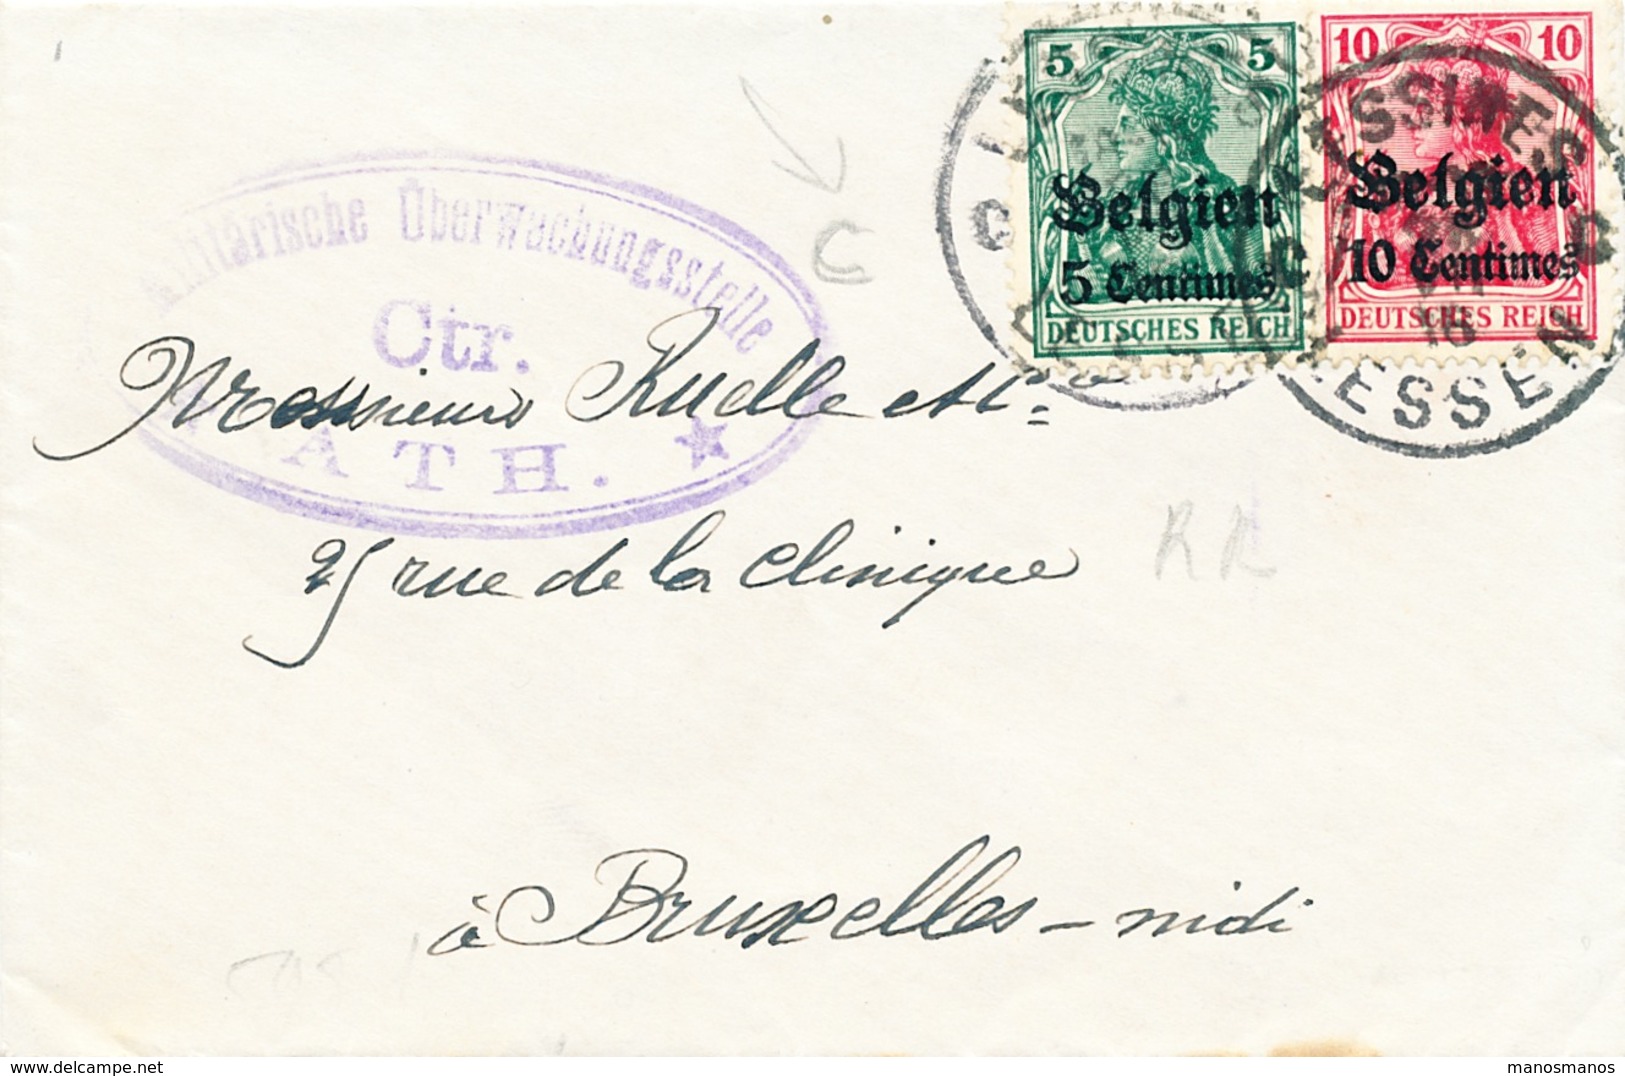 5 5
Belgien
5 Centimes
DEUTSCHES REICH
10 10
Belgien
10 Centimes
DEUTSCHES REICH
LESSINES
C C
16
LESSEN
Militärische Überwachungsstelle
Ctr.
ATH.
C
Messieurs Ruelle et Cie
25 rue de la Clinique
RR
à Bruxelles-midi
manosmanos